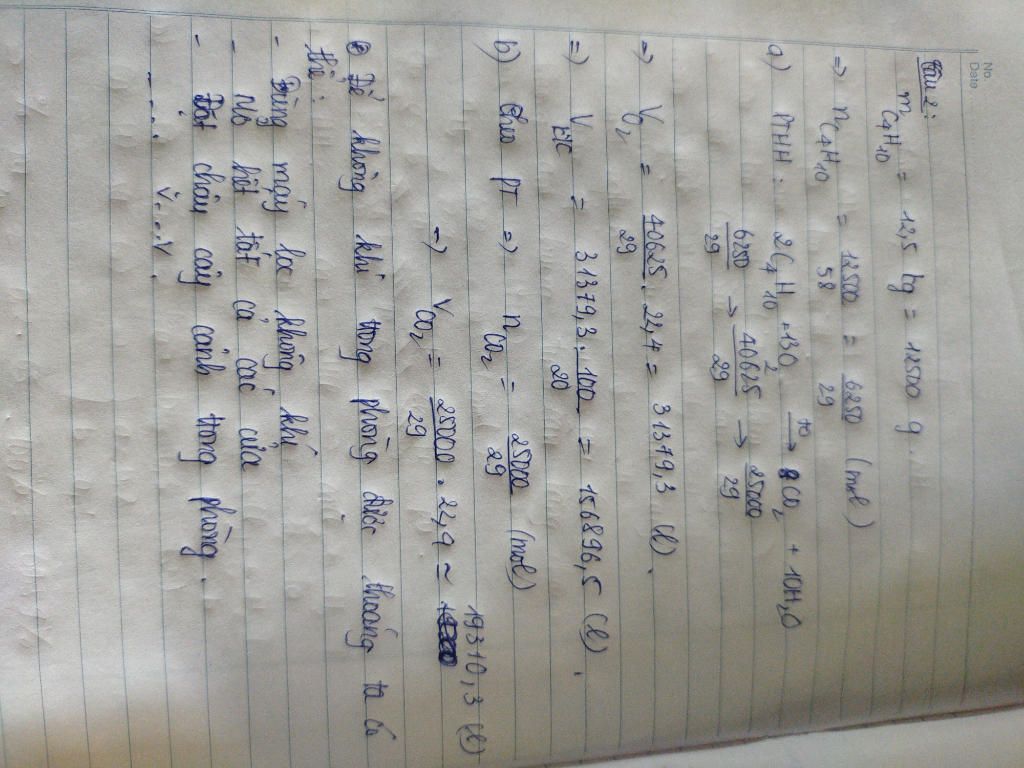 No.
Date
Câu 2:
m C4H10 = 12,5 kg = 12500 g.
=> n C4H10 = 12500/58 = 6250/29 (mol)
a) PTHH: 2C4H10 + 13O2 -to-> 8CO2 + 10H2O
6250/29 -> 40625/29 -> 25000/29
=> VO2 = 40625/29 . 22,4 = 31379,3 (l).
=> Vkk = 31379,3 . 100/20 = 156896,5 (l).
b) Theo PT => nCO2 = 25000/29 (mol)
=> VCO2 = 25000/29 . 22,4 ≃ 19310,3 (l)
Để không khí trong phòng được thoáng ta có
thể:
- Dùng máy lọc không khí
- Mở hết tất cả các cửa
- Đặt chậu cây cảnh trong phòng.
- .... v....v.